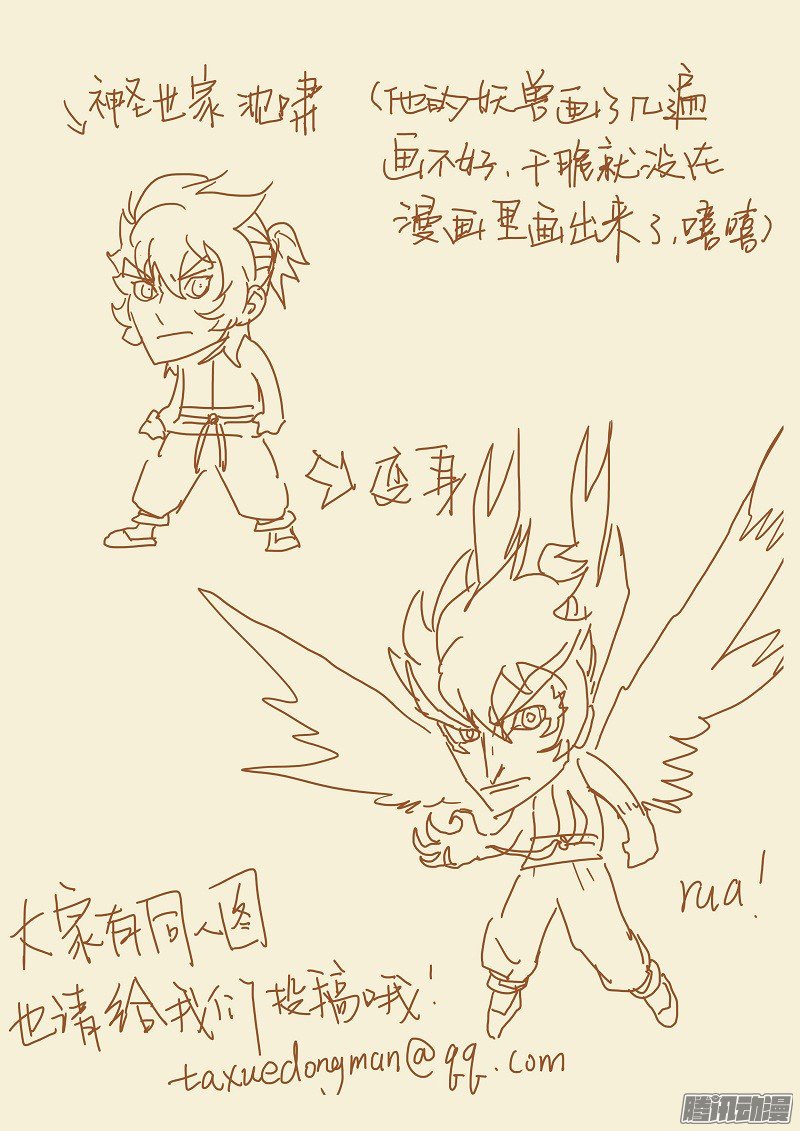 神圣世家 池啸
(他的妖兽画了几遍
画不好、干脆就没在
漫画里画出来了,嘻嘻)
变身
rua!
大家有同人图
也请给我们投稿哦!
taxuedongman@qq.com
腾讯动漫